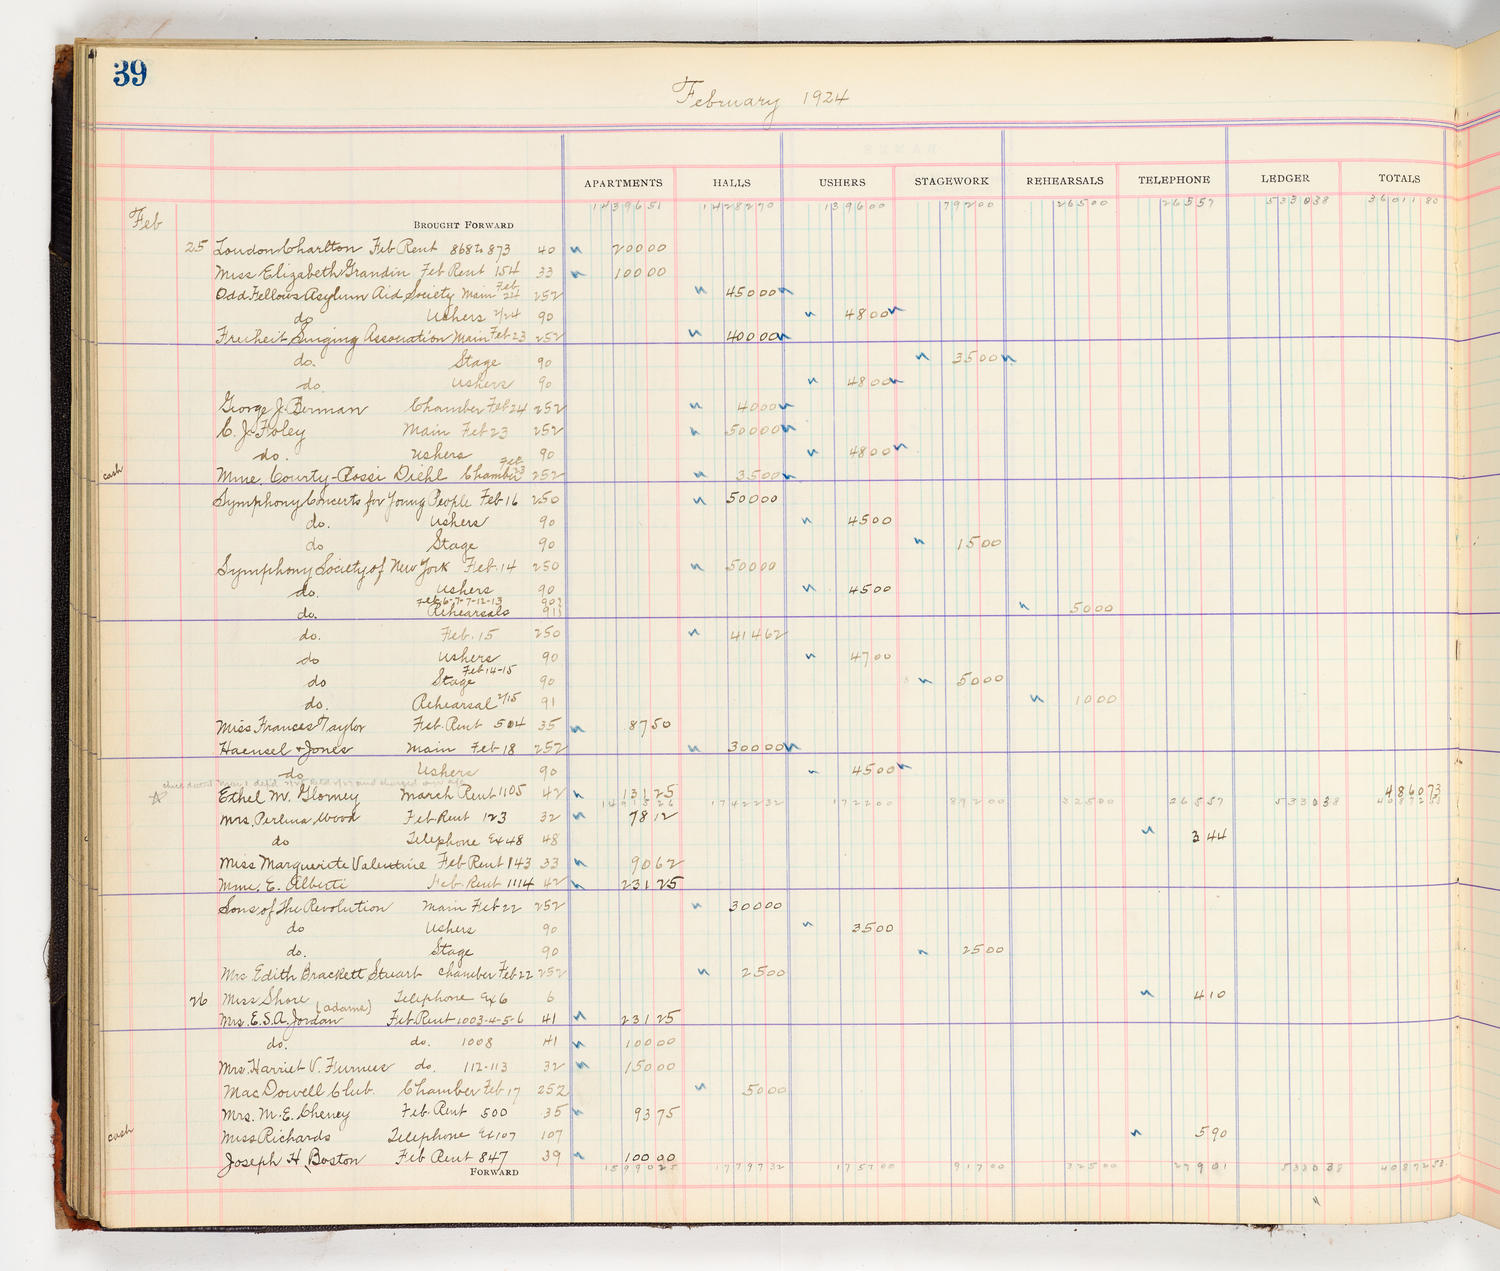 39
February 1924
APARTMENTS HALLS USHERS STAGEWORK REHEARSALS TELEPHONE LEDGER TOTALS
Feb BROUGHT FORWARD 1439651 1428270 139600 79200 26500 26557 533038 3601180
25 Loudon Charlton Feb Rent 868 873 40 20000
Miss Elizabeth Grandin Feb Rent 154 33 10000
Odd Fellows Asylum Aid Society Main Feb 24 252 45000
do Ushers 2/24 90 4800
Freiheit Singing Association Main Feb 23 252 40000
do. Stage 90 3500
do. Ushers 90 4800
George J. Berman Chamber Feb 24 252 4000
C. J. Foley Main Feb 23 252 50000
do. Ushers 90 4800
cash Mme. Courty-Rossi Diehl Chamber Feb 23 252 3500
Symphony Concerts for Young People Feb 16 250 50000
do. Ushers 90 4500
do Stage 90 1500
Symphony Society of New York Feb. 14 250 50000
do. Ushers 90 4500
do. Feb 6-7-7-12-13 Rehearsals 91 5000
do. Feb. 15 250 41462
do Ushers 90 4700
do Stage Feb 14-15 90 5000
do. Rehearsal 2/15 91 1000
Miss Frances Taylor Feb. Rent 504 35 8750
Haensel & Jones Main Feb 18 252 30000
do Ushers 90 4500
Ethel M. Glomey March Rent 1105 42 13125 486073
1491526 1742232 172200 89200 32500 26557 533038 4087253
Mrs. Perlina Wood Feb Rent 123 32 7812
do Telephone Ex 48 48 344
Miss Marguerite Valentine Feb Rent 143 33 9062
Mme. E. Alberti Feb. Rent 1114 42 23125
Sons of the Revolution Main Feb 22 252 30000
do Ushers 90 3500
do. Stage 90 2500
Mrs Edith Brackett Stuart Chamber Feb 22 252 2500
26 Miss Shore Telephone Ex 6 6 410
Mrs. E.S.A. Jordan (adams) Feb. Rent 1003-4-5-6 41 23125
do. do. 1008 41 10000
Mrs. Harriet V. Furness do. 112-113 32 15000
MacDowell Club. Chamber Feb 17 252 5000
Mrs. M. E. Cheney Feb. Rent 500 35 9375
cash Miss Richards Telephone Ex 107 107 590
Joseph H. Boston Feb Rent 847 39 10000
FORWARD 1599025 1779732 175700 91700 32500 27901 533038 4087253